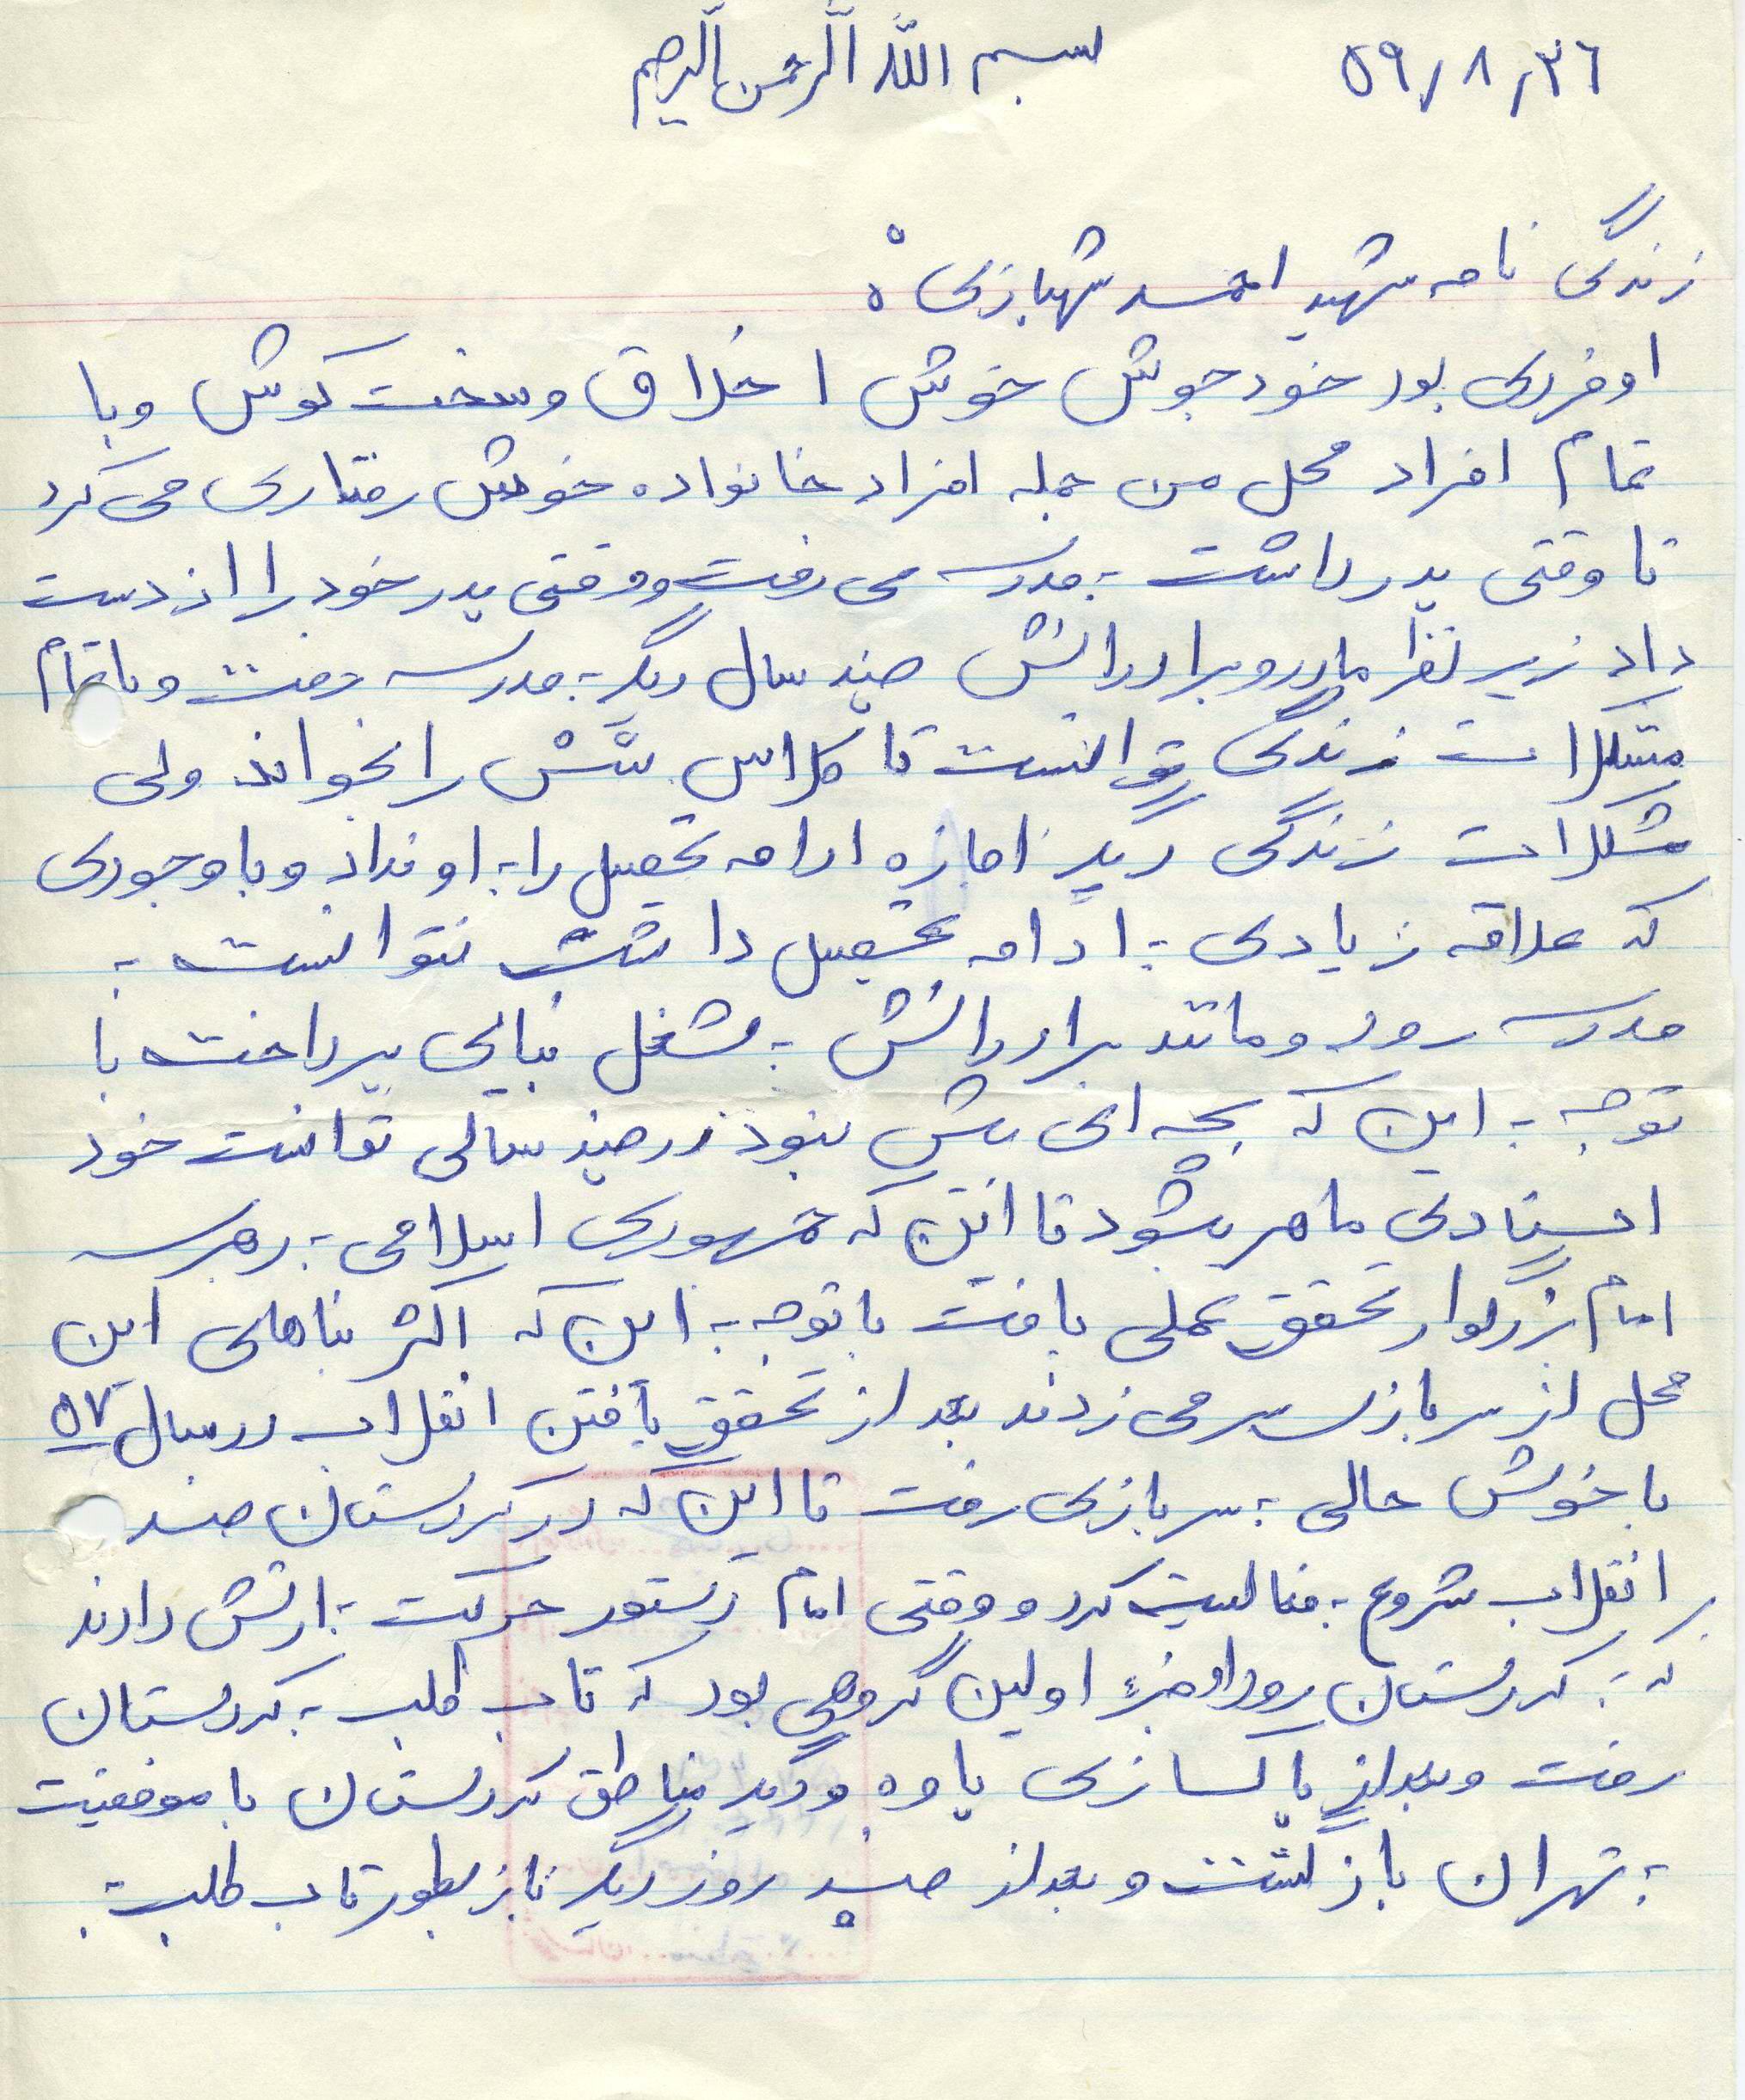 بسم الله الرحمن الرحیم
۵۹/۸/۲۶
زندگی نامه شهید احمد شهبازی ه
او فردی بود خود جوش خوش اخلاق و سخت کوش و با
تمام افراد محل من جمله افراد خانواده خوش رفتاری می کرد
تا وقتی پدر داشت به مدرسه می رفت و وقتی پدر خود را از دست
داد زیر نظر مادر و برادرانش چند سال دیگر به مدرسه رفت و با تمام
مشکلات زندگی توانست تا کلاس شش را بخواند ولی
مشکلات زندگی دیگر اجازه ادامه تحصیل را به او نداد و با وجودی
که علاقه زیادی به ادامه تحصیل داشت نتوانست به
مدرسه رود و مانند برادرانش به شغل بنایی پرداخت با
توجه به این که بچه ای بیش نبود در چند سالی توانست خود
استادی ماهر بشود تا این که جمهوری اسلامی به رهبری
امام بزرگوار تحقق عملی یافت با توجه به این که اکثر بناهای این
محل از سربازی سر می زدند بعد از تحقق یافتن انقلاب در سال ۵۷
با خوش حالی به سربازی رفت تا این که در کردستان ضد
انقلاب شروع به فعالیت کرد و وقتی امام دستور حرکت به ارتش دادند
که به کردستان رود او جزء اولین گروهی بود که داوطلب به کردستان
رفت و بعد از پاکسازی پاوه و دیگر مناطق کردستان با موفقیت
به تهران باز گشت و بعد از چند روز دیگر باز بطور داوطلب به